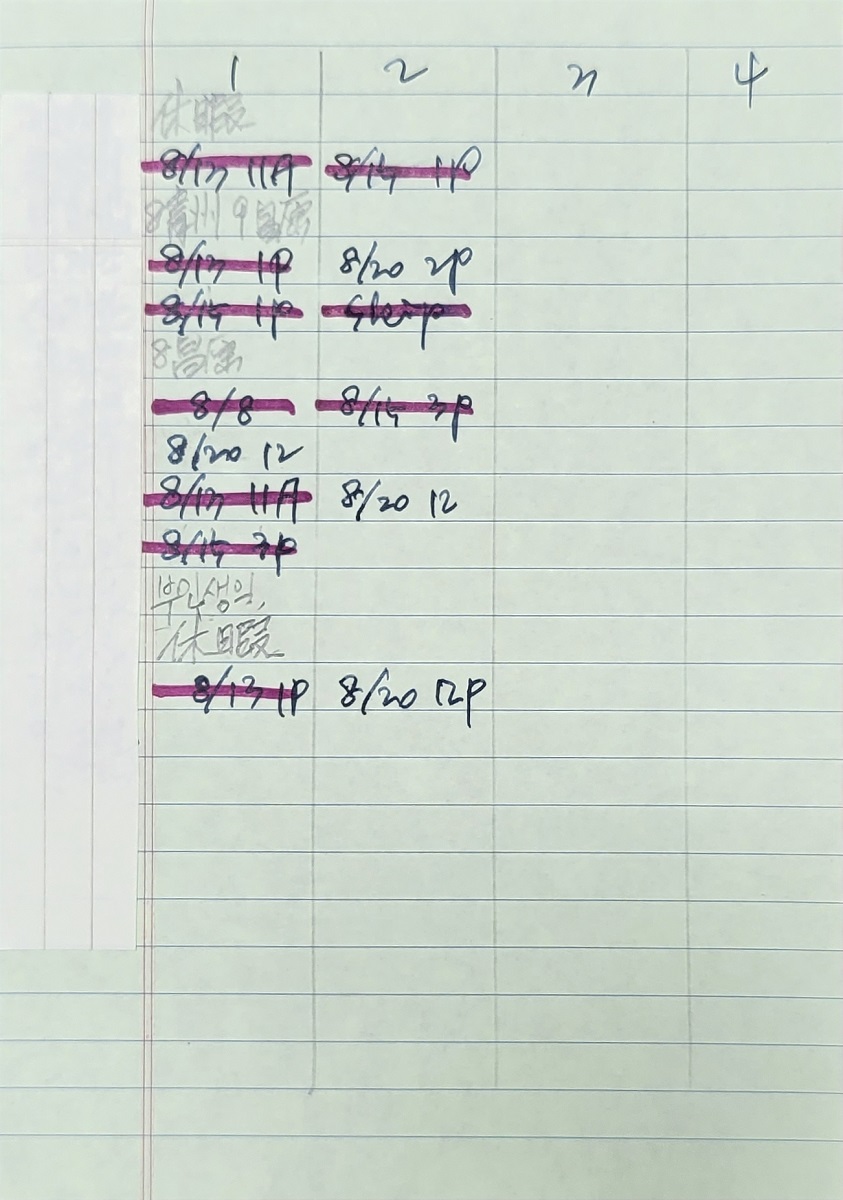 1 2 3 4
休暇
8/13 11A 8/15 11P
8 青州 9
8/13 1P 8/20 2P
8/15 11P Skip
8 昌原
8/8 8/15 3P
8/20 12
8/13 11A 8/20 12
8/15 3P
부인생일,
休暇
8/13 1P 8/20 12P